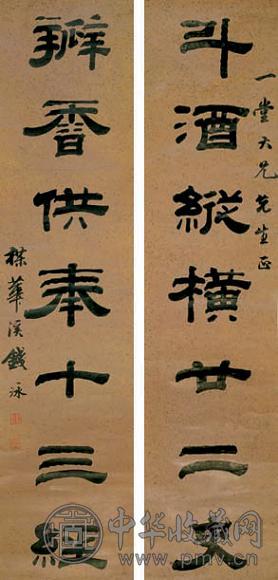 一堂大兄先生正
斗酒縱橫廿二史
瓣香供奉十三經
楳華溪錢泳
中华收藏网
www.pmv.cn